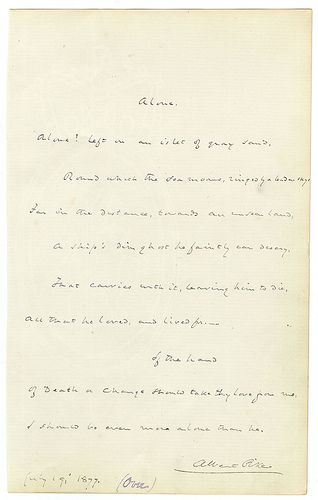 Alone.
Alone! Left on an islet of gray sand,
Round which the sea moans, ringed by a leaden sky,
Far in the distance, towards an unseen land,
A ship's dim ghost he faintly can descry,
That carries with it, leaving him to die,
All that he loved, and lived for.—
If the hand
Of Death or Change should take thy love from me,
I should be even more alone than he.
Albert Pike
July 19, 1877. (Over)